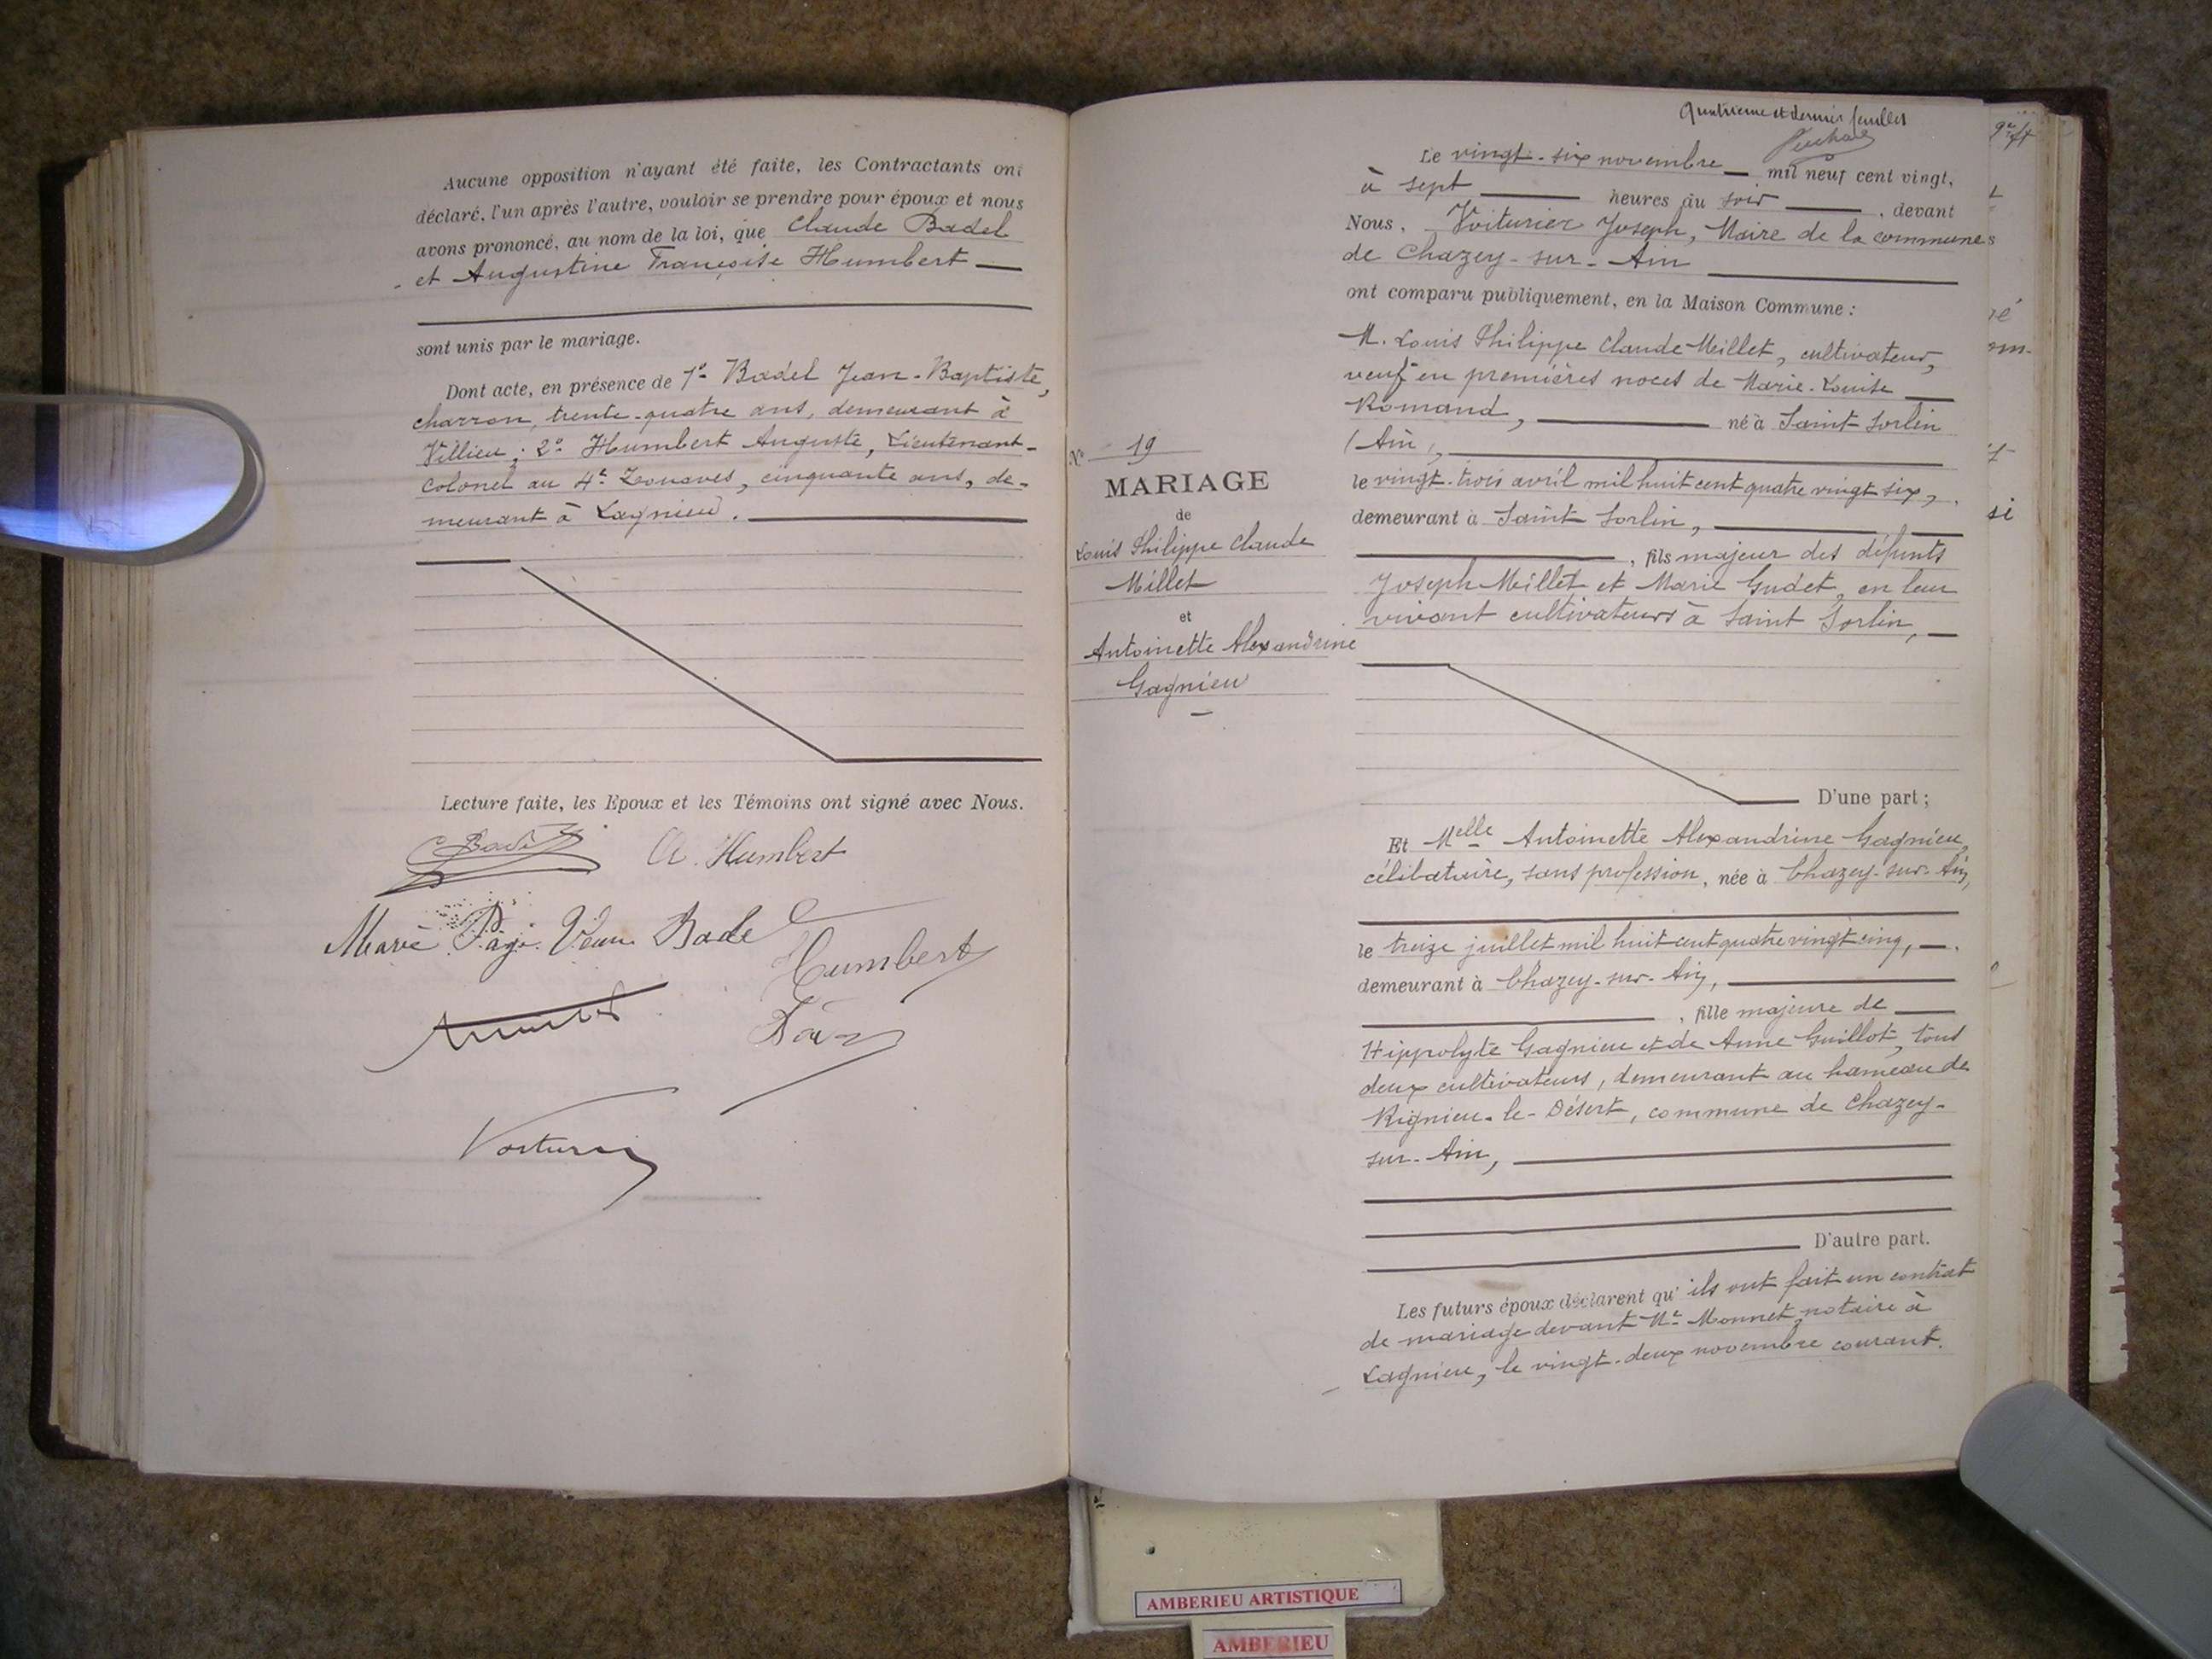 Aucune opposition n'ayant été faite, les Contractants ont
déclaré, l'un après l'autre, vouloir se prendre pour époux et nous
avons prononcé, au nom de la loi, que Claude Badel
et Augustine Françoise Humbert
sont unis par le mariage.
Dont acte, en présence de 1º Badel Jean-Baptiste,
charron, trente-quatre ans, demeurant à
Villieu; 2º Humbert Auguste, Lieutenant-
colonel au 4e Zouaves, cinquante ans, de-
meurant à Lagnieu.
Lecture faite, les Epoux et les Témoins ont signé avec Nous.
C Badel
A. Humbert
Marie Veuve Badel
Humbert
Voiturier
Quatrième et dernier feuillet
Le vingt-six novembre mil neuf cent vingt,
à sept heures du soir, devant
Nous, Voiturier Joseph, Maire de la commune
de Chazey-sur-Ain
ont comparu publiquement, en la Maison Commune :
M. Louis Philippe Claude Millet, cultivateur,
veuf en premières noces de Marie-Louise
Romand, né à Saint Sorlin
(Ain),
le vingt-trois avril mil huit cent quatre vingt six,
demeurant à Saint Sorlin,
, fils majeur des défunts
Joseph Millet et Marie Gudet, en leur
vivant cultivateurs à Saint Sorlin,
D'une part ;
Nº 19
MARIAGE
de
Louis Philippe Claude
Millet
et
Antoinette Alexandrine
Gagnieu
Et Melle Antoinette Alexandrine Gagnieu,
célibataire, sans profession, née à Chazey-sur-Ain,
le treize juillet mil huit cent quatre vingt cinq,
demeurant à Chazey-sur-Ain,
, fille majeure de
Hippolyte Gagnieu et de Anne Guillot, tous
deux cultivateurs, demeurant au hameau de
Rignieu-le-Désert, commune de Chazey-
sur-Ain,
D'autre part.
Les futurs époux déclarent qu'ils ont fait un contrat
de mariage devant Me Monnet, notaire à
Lagnieu, le vingt-deux novembre courant.
AMBERIEU ARTISTIQUE
AMBERIEU